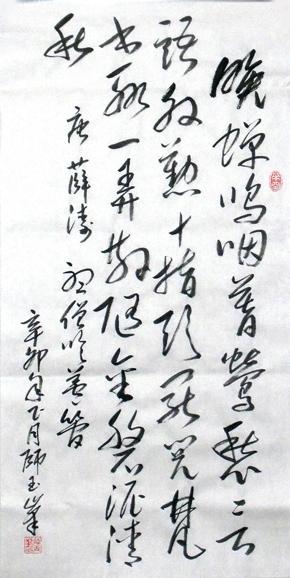 晓蝉鸣咽暮莺愁言
语殷勤十指头罢览梵
书聊一弄散随金磬泥清
秋
唐薛涛 听僧吹芦管
辛卯年正月師玉峯